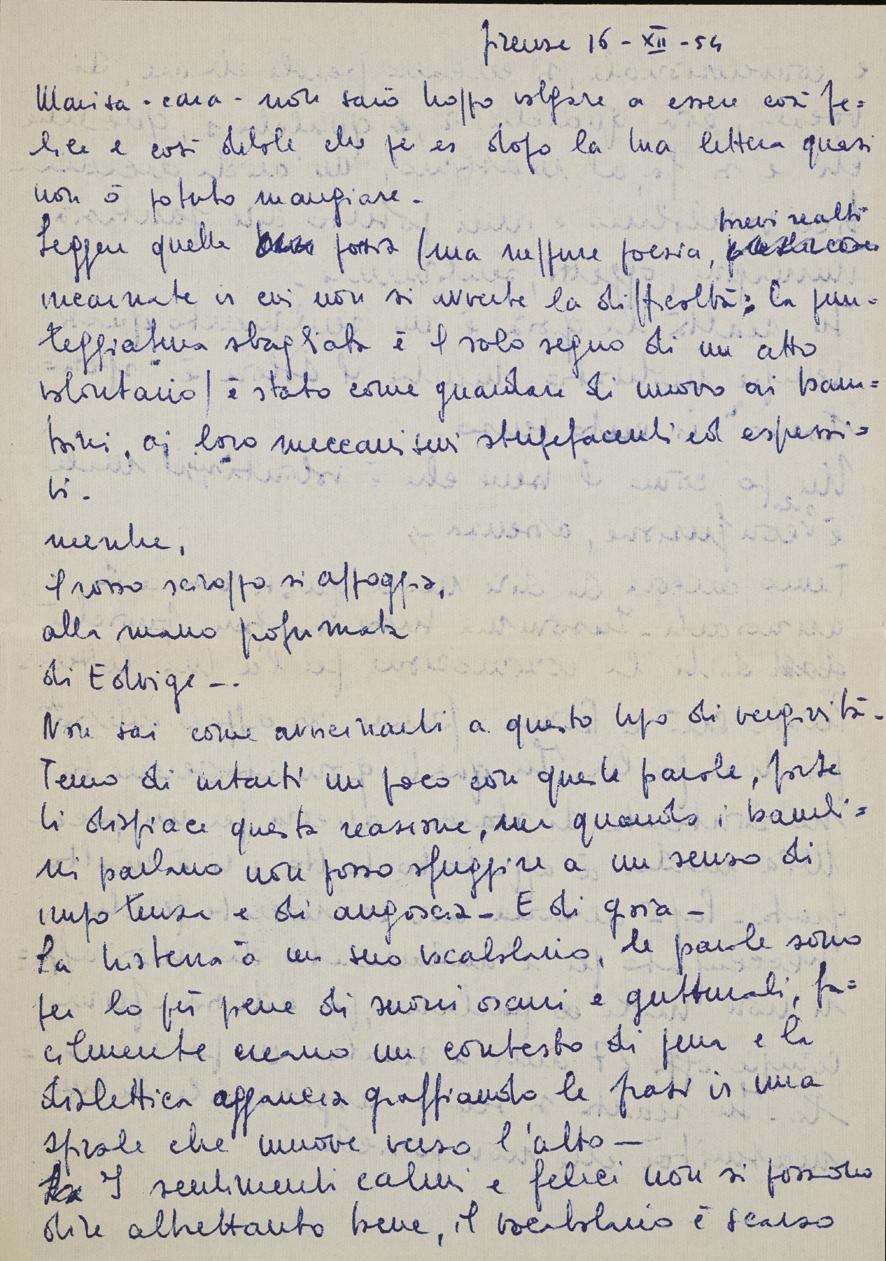 Firenze 16 - XII - 54
Marisa - cara - non sarò troppo volgare a essere così fe-
lice e così debole che per es dopo la tua lettera quasi
non ò potuto mangiare -
Leggere quelle poesie (ma neppure poesia, brevi realtà
incarnate in cui non si avverte la difficoltà: la pun-
teggiatura sbagliata è il solo segno di un atto
volontario) è stato come guardare di nuovo ai bam=
bini, ai loro meccanismi stupefacenti ed espressi=
vi -
mentre,
il rosso sciroppo si appoggia,
alla mano profumata
di Edvige -.
Non sai come avvicinarti a questo tipo di verginità -
Temo di urtarti un poco con queste parole, forse
ti dispiace questa reazione, ma quando i bambi=
ni parlano non posso sfuggire a un senso di
impotenza e di angoscia - E di gioia -
La tristezza à un suo vocabolario, le parole sono
per lo più piene di suoni oscuri e gutturali, fa=
cilmente creano un contesto di pena e la
dialettica aggancia graffiando le frasi in una
spirale che muove verso l'alto -
I sentimenti calmi e felici non si possono
dire altrettanto bene, il vocabolario è scarso